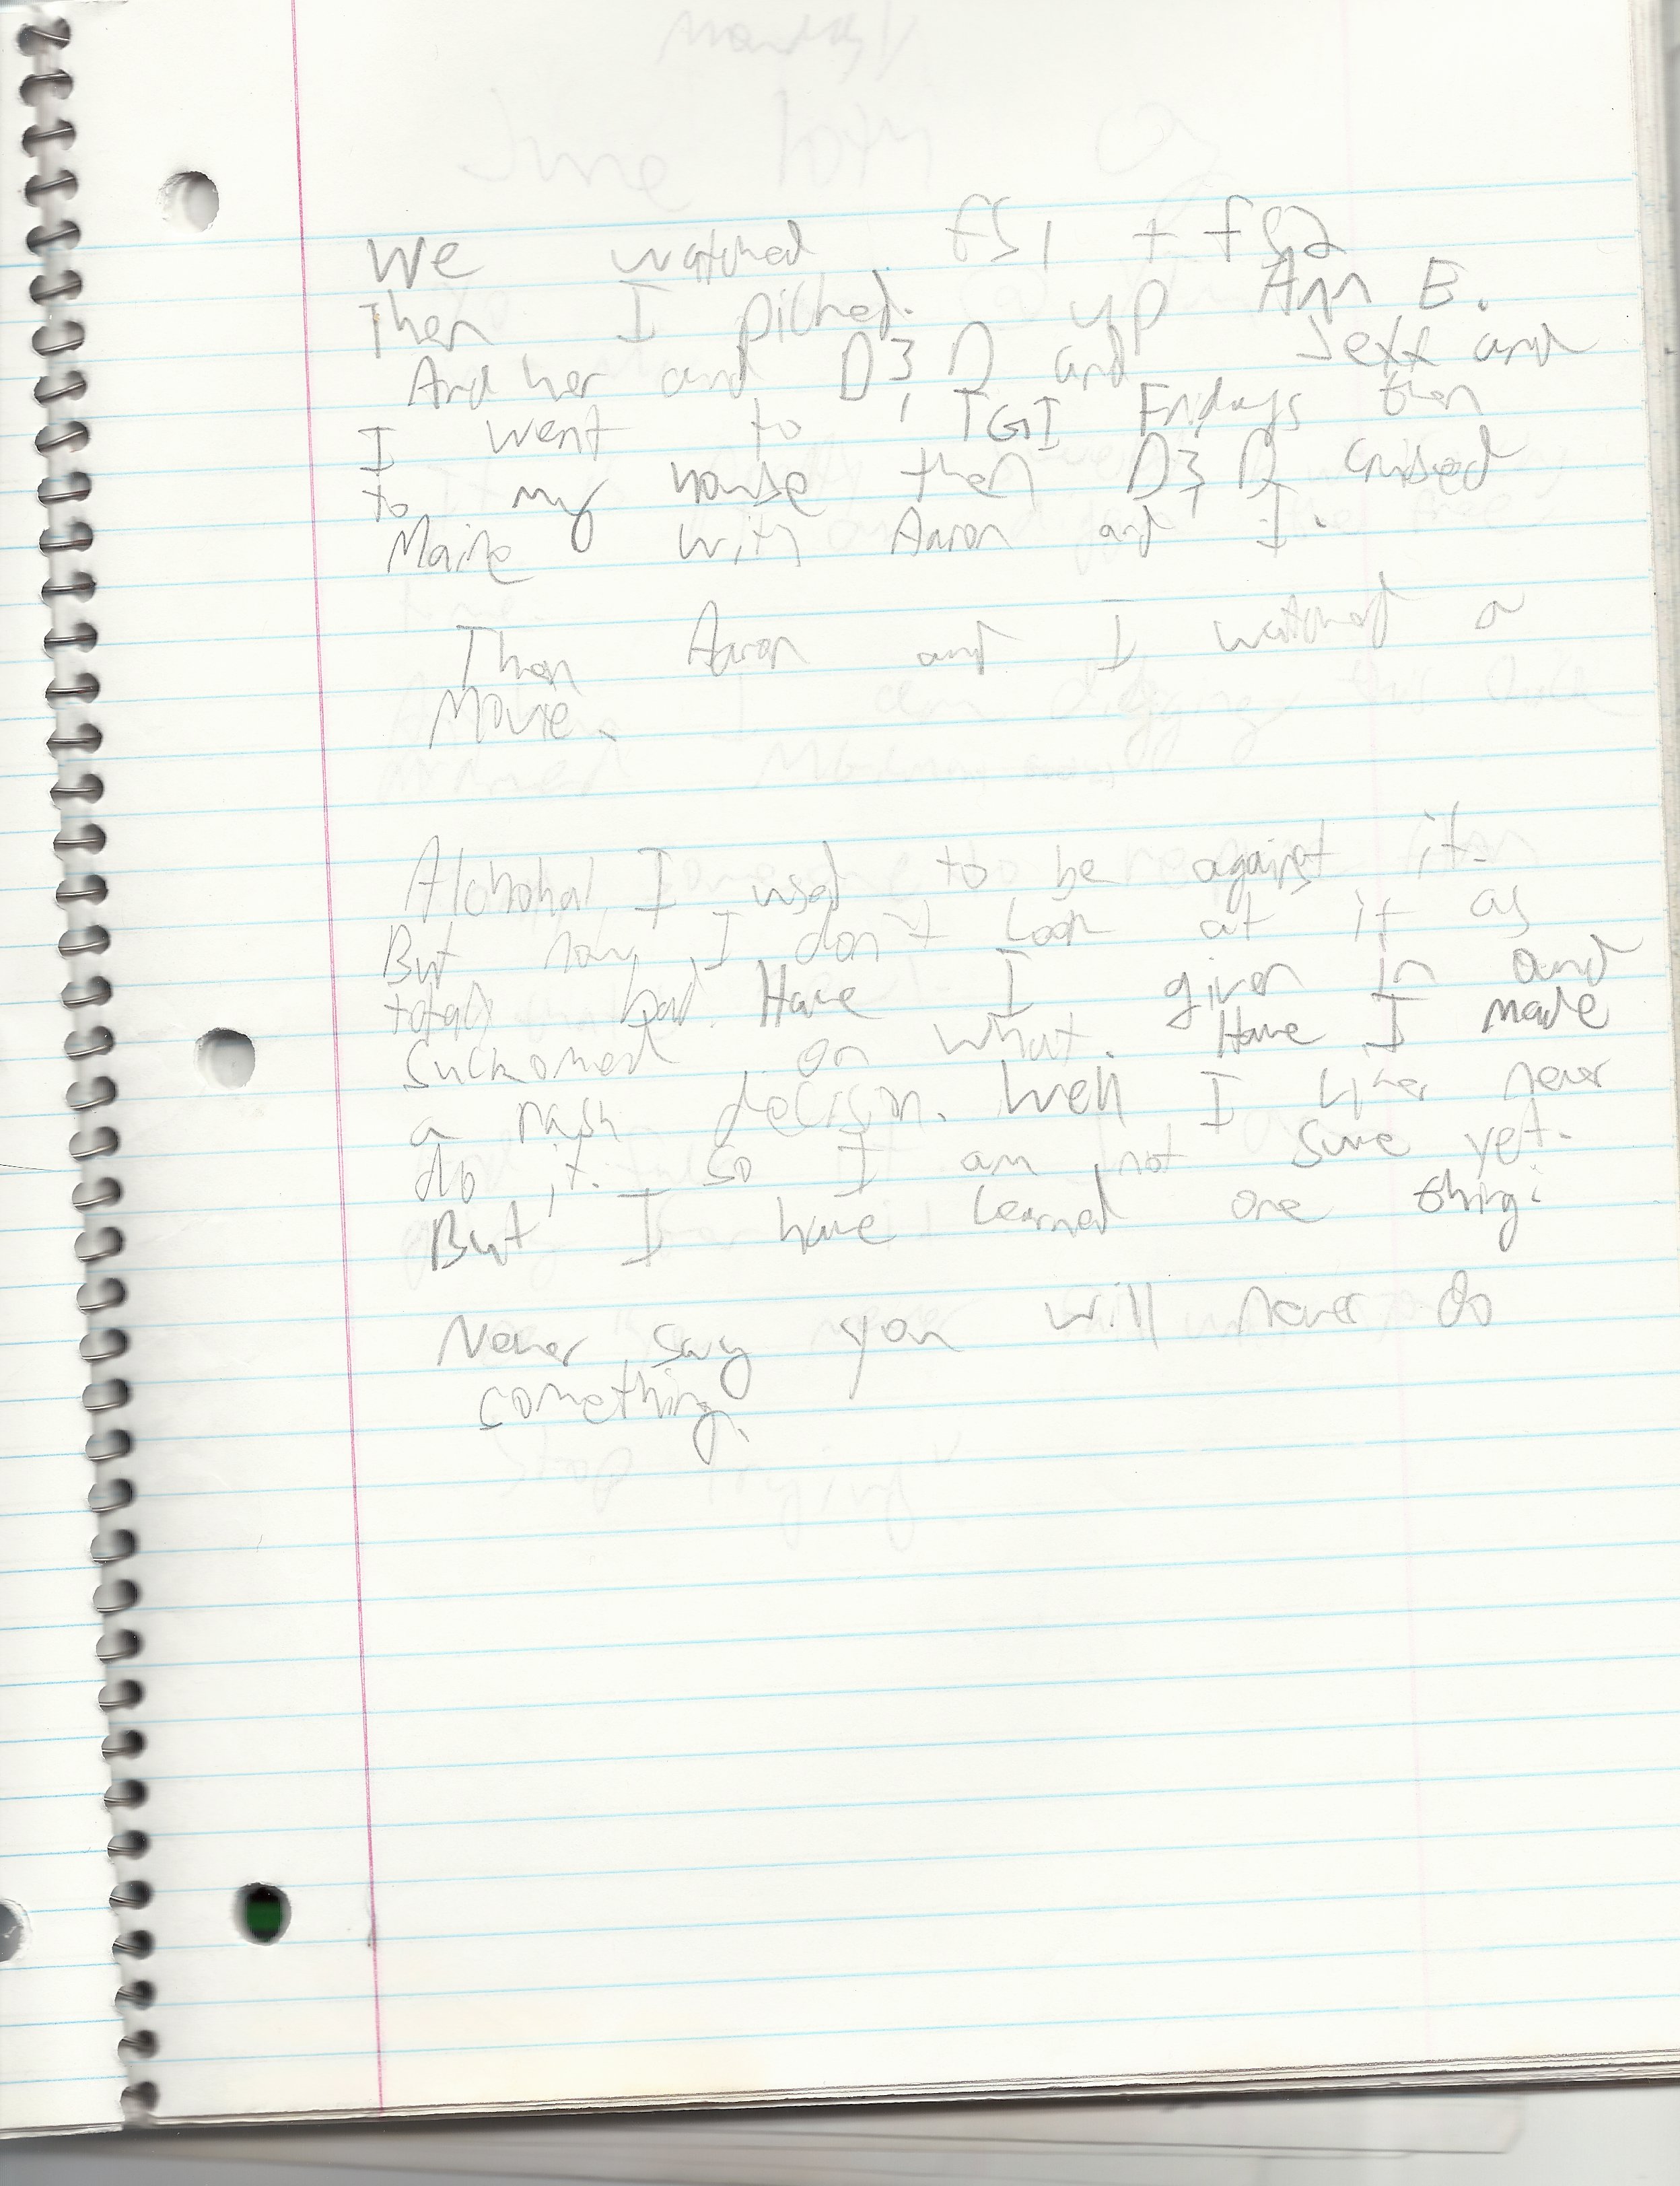 We watched fS1 + fS2
Then I picked up Ann B.
And her and D3D and Jeff and
I went to TGI Fridays then
to my house then D3D cruised
Maine with Aaron and I.
Then Aaron and I watched a
Movie.
Alcohol, I used to be against it.
But now, I don't look at it as
totaly bad. Have I given in and
on what. Have I made
a rash decision. Well I never
do it. so I am not sure yet.
But I have learned one thing:
Never say you will never do
something.